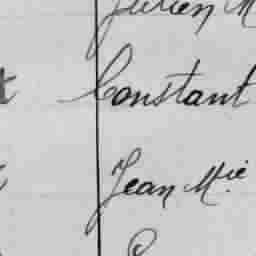 Julien M
Constant
Jean Mie